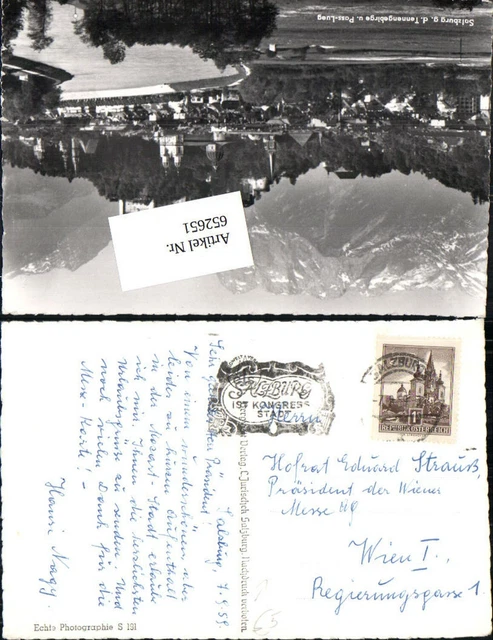 Salzburg g. d. Tennengebirge u. Pass-Lueg
Artikel Nr.
652651
Salzburg, 7.9.59.
Sehr geehrter Herr Präsident!
Von einem wunderschönen aber
leider zu kurzen Aufenthalt
in der Mozart-Stadt erlaube
ich mir, Ihnen die herzlichsten
Urlaubsgrüsse zu senden. Und
noch vielen Dank für die
Messe-Karte! -
Hansi Nagy.
Echte Photographie S 191
Verlag C. Jurischek Salzburg, Nachdruck verboten.
SALZBURG
IST KONGRESS
STADT
SALZBURG
REPUBLIK ÖSTERREICH
Herrn
Hofrat Eduard Strauß,
Präsident der Wiener
Messe AG
Wien I.,
Regierungsgasse 1